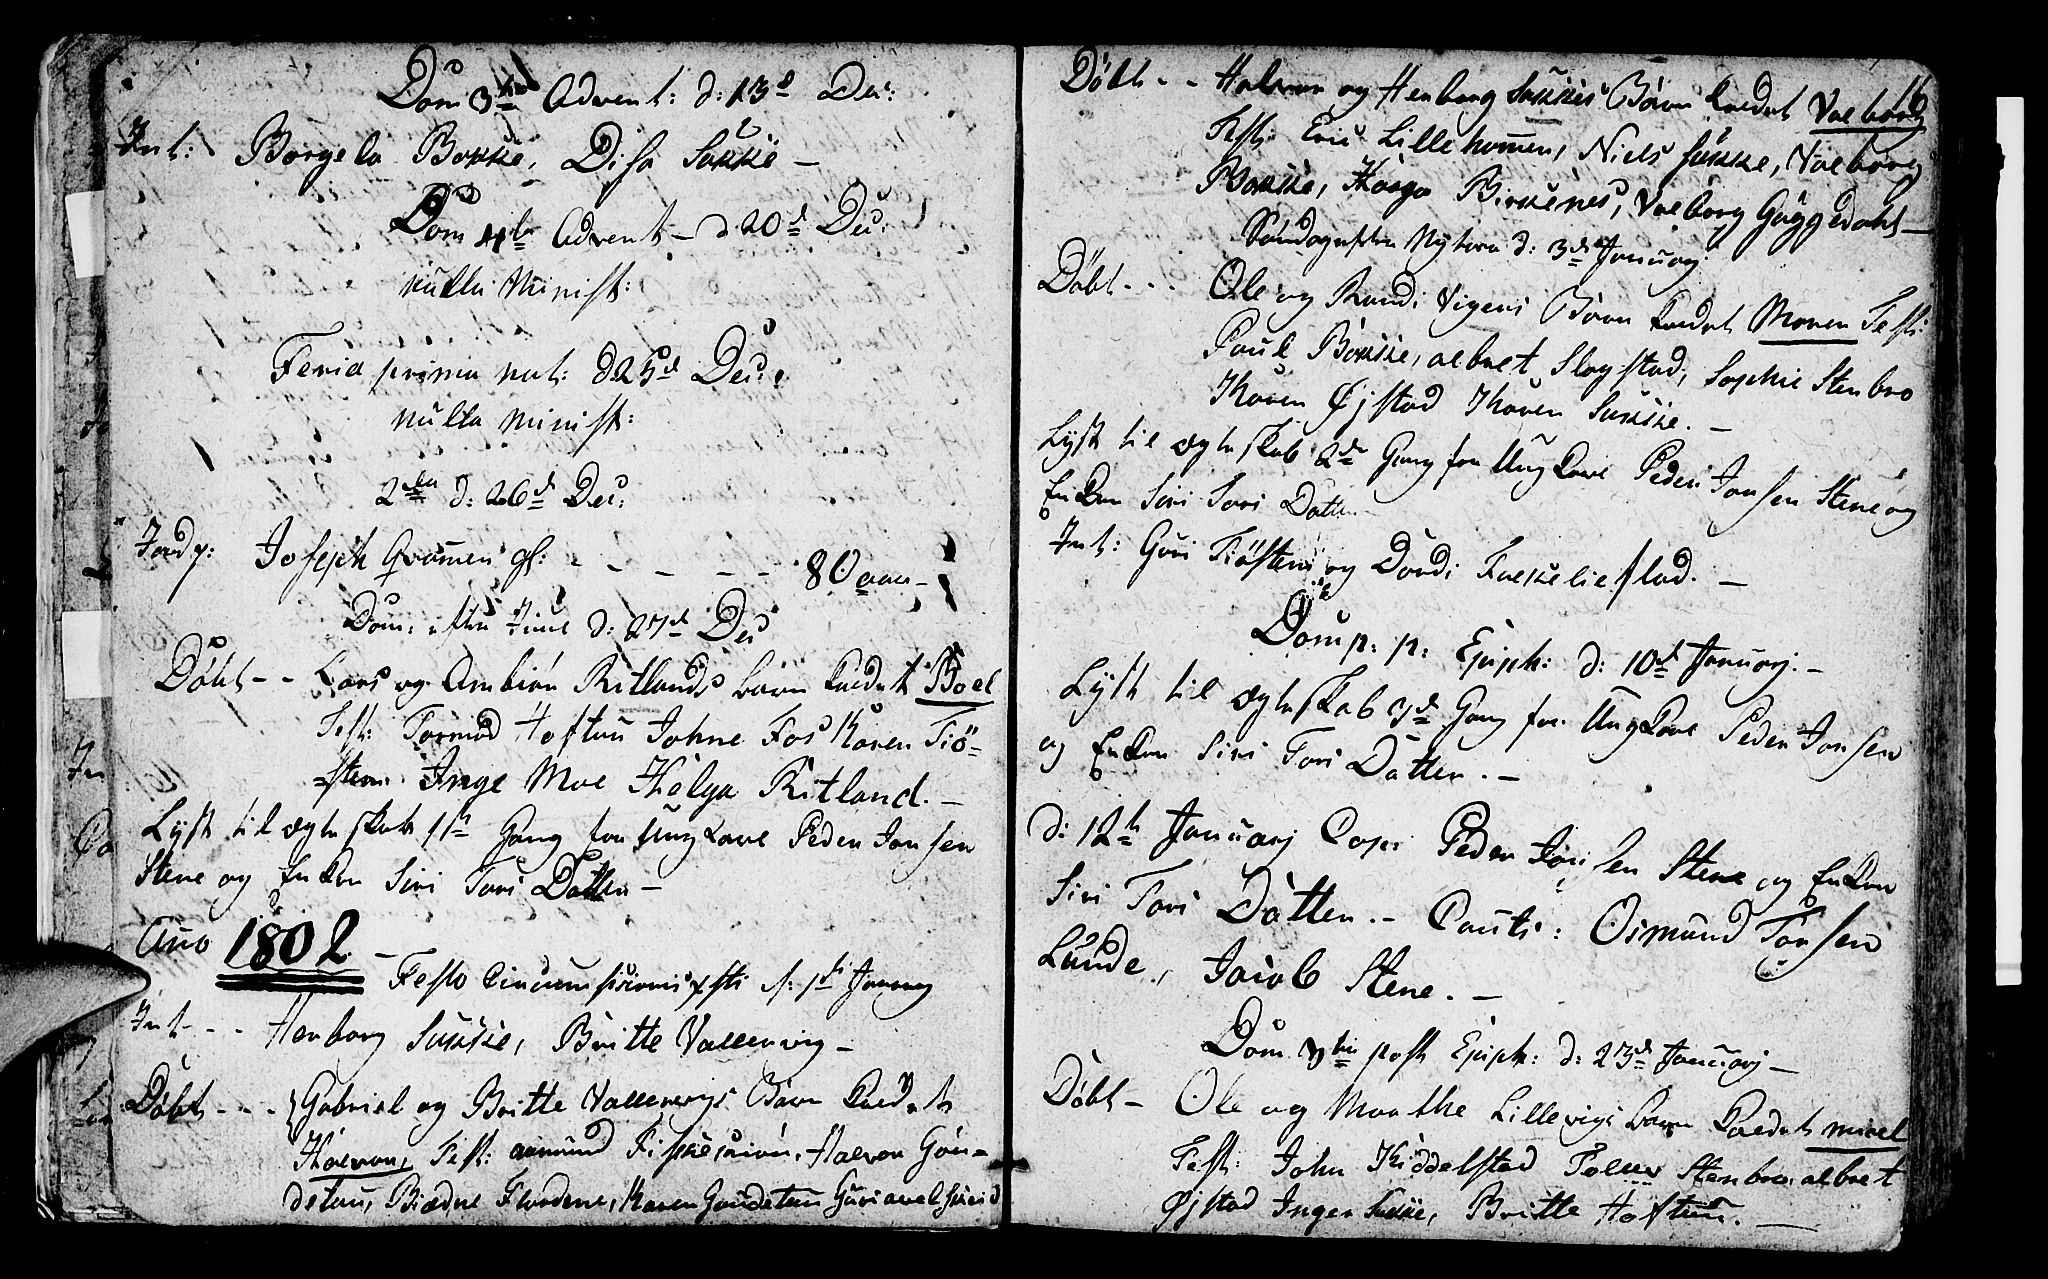 Dom 3tia Advent: d: 13d Dec:
Int: Borgela Bokke, Disa Sukke –
Dom 4ta Advent – d 20d Dec:
nulla Minist:
Feria prima nat: d 25d Dec:
nulla Minist:
2da d: 26d Dec:
Jordf: Joseph Qvamen gl: – – – – – 80 aar –
Dom: efter Juul d: 27d Dec
Døbt – – Lars og Anbiør Ritlands barn kaldet Boel
Test: Tormod Hoftun Johne Fos Karen Tiø-
sten. Inge Moe Helga Ritland. –
Lyst til ægteskab 1st Gang for Ung Karl Peder Jonsen
Stene og Enken Siri Tori Datter –
Año 1802 – Festo Circumsisionis xsti d. 1st January
Int – – Henborg Sukke, Britte Vallervig –
Døbt – – – Gabriel og Britte Vallervigs Barn kaldet
Halvor, Test: Aamund Halvor Gön-
detun, Flordene, Karen Göndetun Guri
16
Døbt – – Halvor og Henborg Sukkes Barn kaldet Valborg
Test: Eric Lillehammer, Niels Sukke, Valborg
Bokke, Birkenes, Valborg Gøggedahl –
Søndag efter Nytaar d: 3d January
Døbt – – – Ole og Randi Vigens Barn kaldet Maren Test:
Poul Bokke, Albret Slogstad, Sophie Stenbro
Karen Øjstad Karen Sukke. –
Lyst til ægteskab 2den Gang for Ung Karl Peder Jonsen Stene og
Enken Siri Tori Datter
Int: Guri Tiøsten og Dordi Falkeliestad. –
Dom p: p: Epiph: d: 10d January. –
Lyst til ægteskab 3d Gang for Ung Karl Peder Jonsen
og Enken Siri Tori Datter. –
d: 12te January Cop: Peder Jonsen Stene og Enken
Siri Tori Datter. – Cauti: Osmund Torsen
Lunde, Jacob Stene. –
Dom 3tia post Epiph: d: 23d January –
Døbt – Ole og Marthe Lillevigs barn kaldet Micel
Test: John Kiddelstad Stenbro, Albret
Øjstad Inger Sukke, Britte Hoftun. –